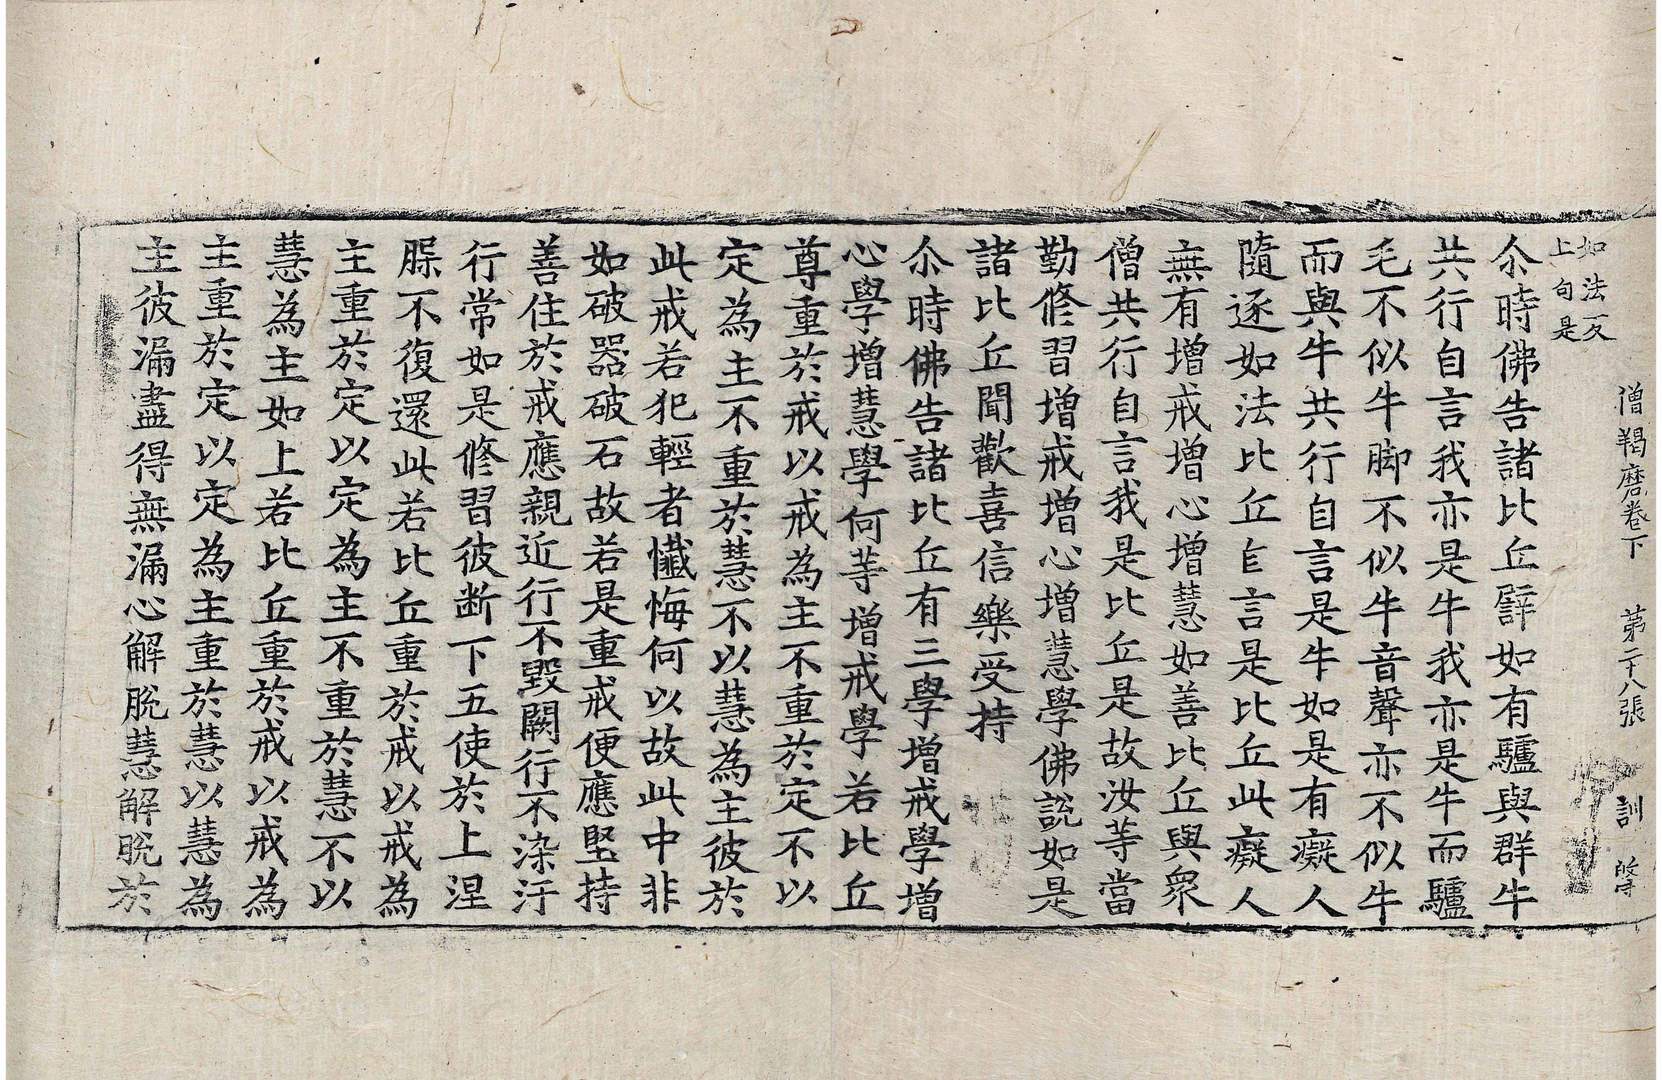 僧羯磨卷下　第二十八張　訓
如法反
上句是
尒時佛告諸比丘譬如有驢與群牛
共行自言我亦是牛我亦是牛而驢
毛不似牛脚不似牛音聲亦不似牛
而與牛共行自言是牛如是有癡人
隨逐如法比丘自言是比丘此癡人
無有增戒增心增慧如善比丘與衆
僧共行自言我是比丘是故汝等當
勤修習增戒增心增慧學佛說如是
諸比丘聞歡喜信樂受持
尒時佛告諸比丘有三學增戒學增
心學增慧學何等增戒學若比丘
尊重於戒以戒為主不重於定不以
定為主不重於慧不以慧為主彼於
此戒若犯輕者懺悔何以故此中非
如破器破石故若是重戒便應堅持
善住於戒應親近行不毀闕行不染汙
行常如是修習彼斷下五使於上涅
槃不復還此若比丘重於戒以戒為
主重於定以定為主不重於慧不以
慧為主如上若比丘重於戒以戒為
主重於定以定為主重於慧以慧為
主彼漏盡得無漏心解脫慧解脫於